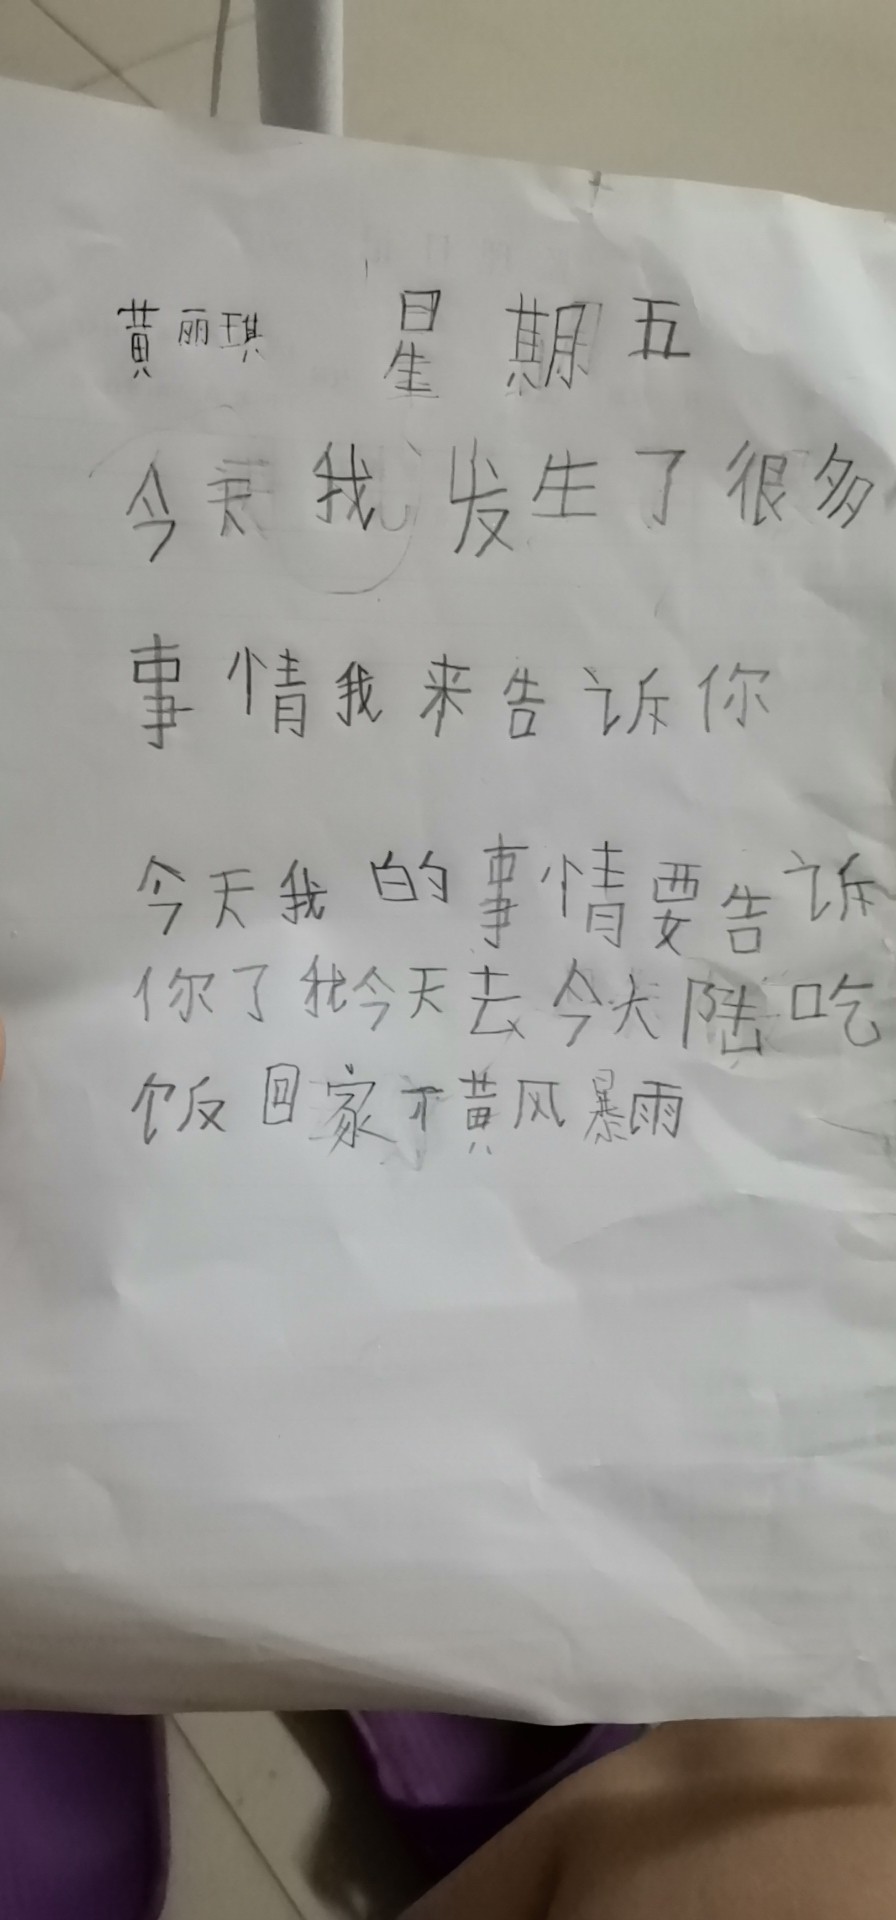 黄丽琪 星期五
今天我发生了很多
事情我来告诉你
今天我的事情要告诉
你了我今天去今大陆吃
饭回家下黄风暴雨